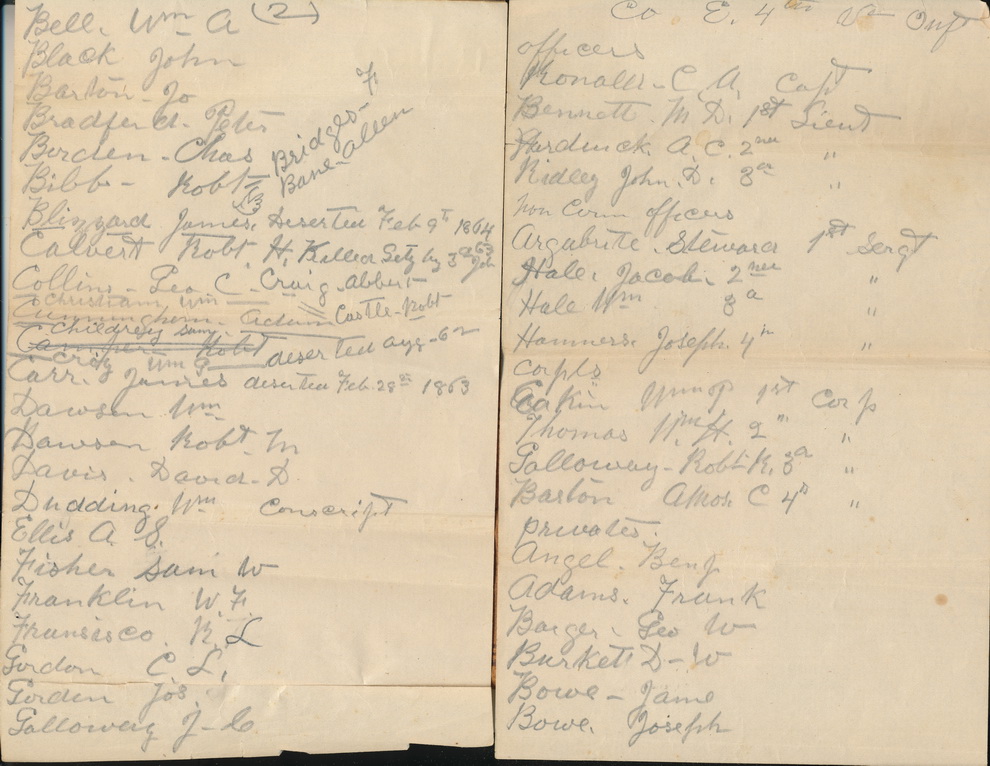 Bell. Wm A (2)
Black John
Barton - Jo
Bradford. Peter
Borden - Chas
Bibb - Robt
Bridges - F
Bane - Allen
Blizzard James. Deserted Feb 9th 1864
Calvert Robt H. Killed
Collins - Geo. C. Craig. Abbert
Christian, Wm
Cunninghem. Castle - Robt
Childrey Sam.
Robt deserted Aug - 62
Craig Wm P
Carr. James deserted Feb. 28th 1863
Dawson Wm
Dawson Robt. M
Davis. David. D
Dudding. Wm Conscript
Ellis A. S.
Fisher Sam W
Franklin W. F.
Fransisco. R. L
Gordon C. L.
Gorden Jos.
Galloway J - C
Co E. 4th Va Inft
officers
Ronald - C A. Capt
Bennett. M D. 1st Lieut
Harduick. A. C. 2nd "
Ridley John. D. 3d "
Non Com officers
Argabrite. Steward 1st Sergt
Hale. Jacob. 2nd "
Hale Wm 3d "
Hammers. Joseph. 4th "
Corpls
Eakin Wm P 1st Corp
Thomas Wm. H. 2" "
Galloway - Robt R. 3d "
Barton Amos C 4th "
privates.
Angel. Benj
Adams. Frank
Barger. Geo W
Burkett D - W
Bowe - Jame
Bowe. Joseph